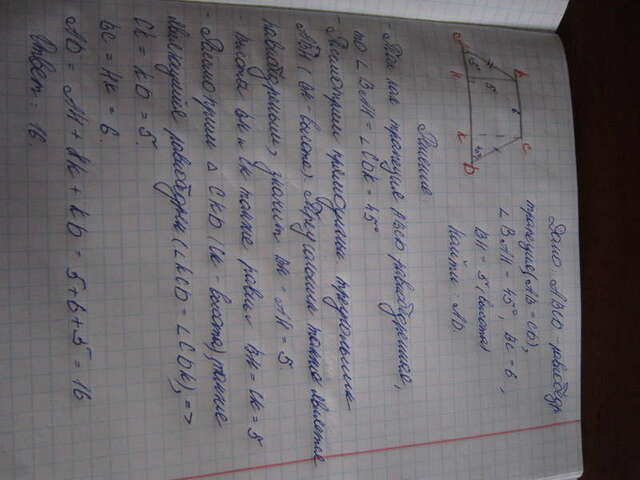 Дано: ABCD - равнобедр.
трапеция (AB = CD),
∠BAH = 45°, BC = 6,
BH = 5 (высота)
Найти: AD
A
B
C
D
H
K
5
6
45°
45°
Решение
- Так как трапеция ABCD равнобедренная,
то ∠BAH = ∠CDK = 45°
- Рассмотрим прямоугольный треугольник
ABH (BH - высота). Треугольник также является
равнобедренным, значит BH = AH = 5
- Высоты BH и CK также равны BH = CK = 5
- Рассмотрим △CKD (CK - высота), также
является равнобедрен (∠KCD = ∠CDK), =>
CK = KD = 5.
BC = HK = 6.
AD = AH + HK + KD = 5 + 6 + 5 = 16
Ответ: 16.